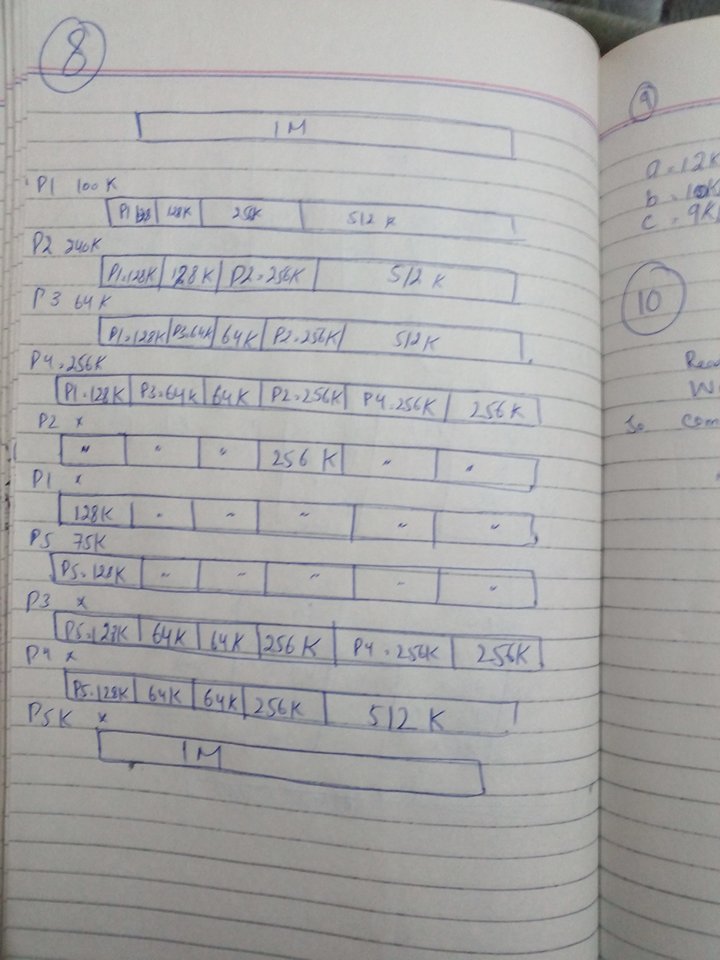 8
1M
P1 100K
P1 128 128K 256K 512 K
P2 240K
P1=128K 128K P2=256K 512 K
P3 64K
P1=128K P3=64K 64K P2=256K 512K
P4=256K
P1=128K P3=64K 64K P2=256K P4=256K 256K
P2 x
" " " 256 K " "
P1 x
128K " " " " "
P5 75K
P5=128K " " " " "
P3 x
P5=128K 64K 64K 256K P4=256K 256K
P4 x
P5=128K 64K 64K 256K 512 K
P5K x
1M
9
a=12K
b=10K
c=9K
10
So com